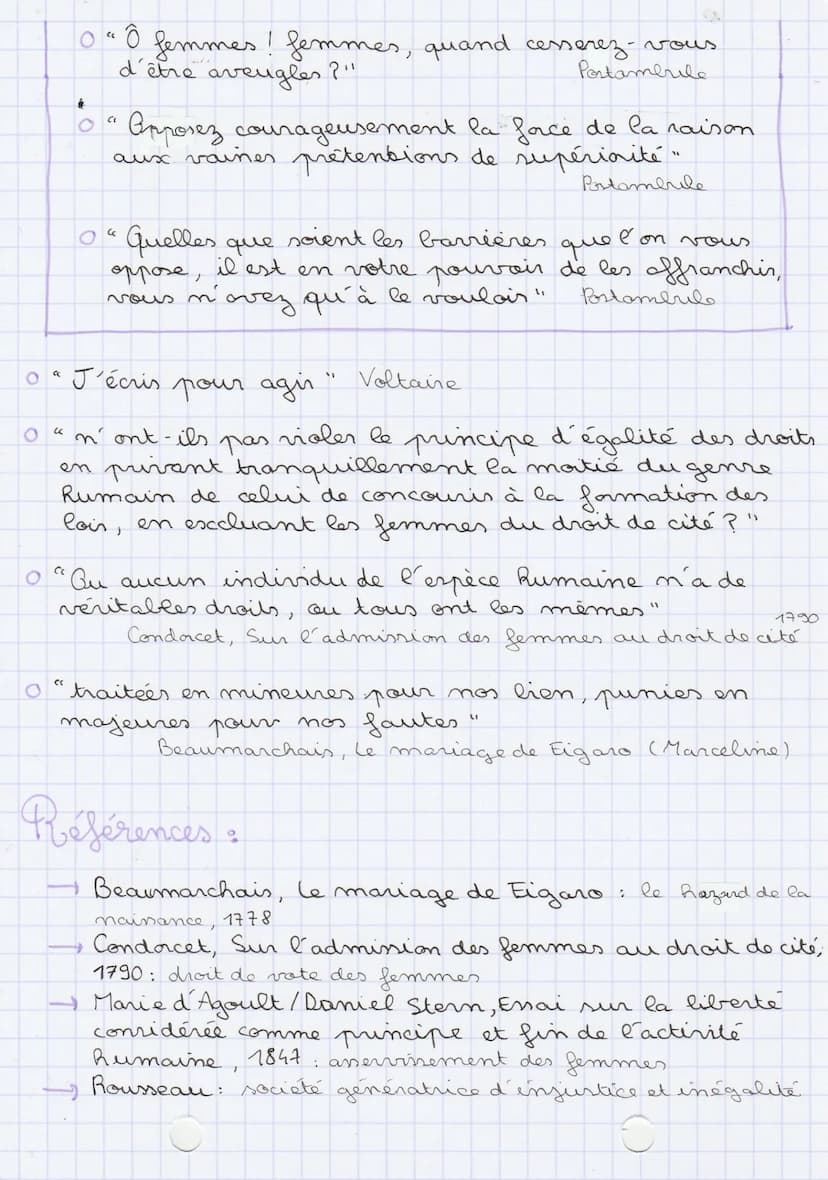 "Ô femmes ! femmes, quand cesserez-vous
d'être aveugles ?" Postambule
"Opposez courageusement la force de la raison
aux vaines prétentions de supériorité"
Postambule
"Quelles que soient les barrières que l'on vous
oppose, il est en votre pouvoir de les affranchir,
vous n'avez qu'à le vouloir" Postambule
"J'écris pour agir" Voltaire
"n'ont-ils pas violer le principe d'égalité des droits
en privant tranquillement la moitié du genre
humain de celui de concourir à la formation des
lois, en excluant les femmes du droit de cité ?"
"Ou aucun individu de l'espèce humaine n'a de
véritables droits, ou tous ont les mêmes"
Condorcet, Sur l'admission des femmes au droit de cité 1790
"traitées en mineures pour nos bien, punies en
majeures pour nos fautes"
Beaumarchais, Le mariage de Figaro (Marceline)
Références :
→ Beaumarchais, Le mariage de Figaro : le hazard de la
naissance, 1778
→ Condorcet, Sur l'admission des femmes au droit de cité,
1790 : droit de vote des femmes
→ Marie d'Agoult / Daniel Stern, Essai sur la liberté
considérée comme principe et fin de l'activité
humaine, 1847 : asservissement des femmes
→ Rousseau : société génératrice d'injustice et inégalité